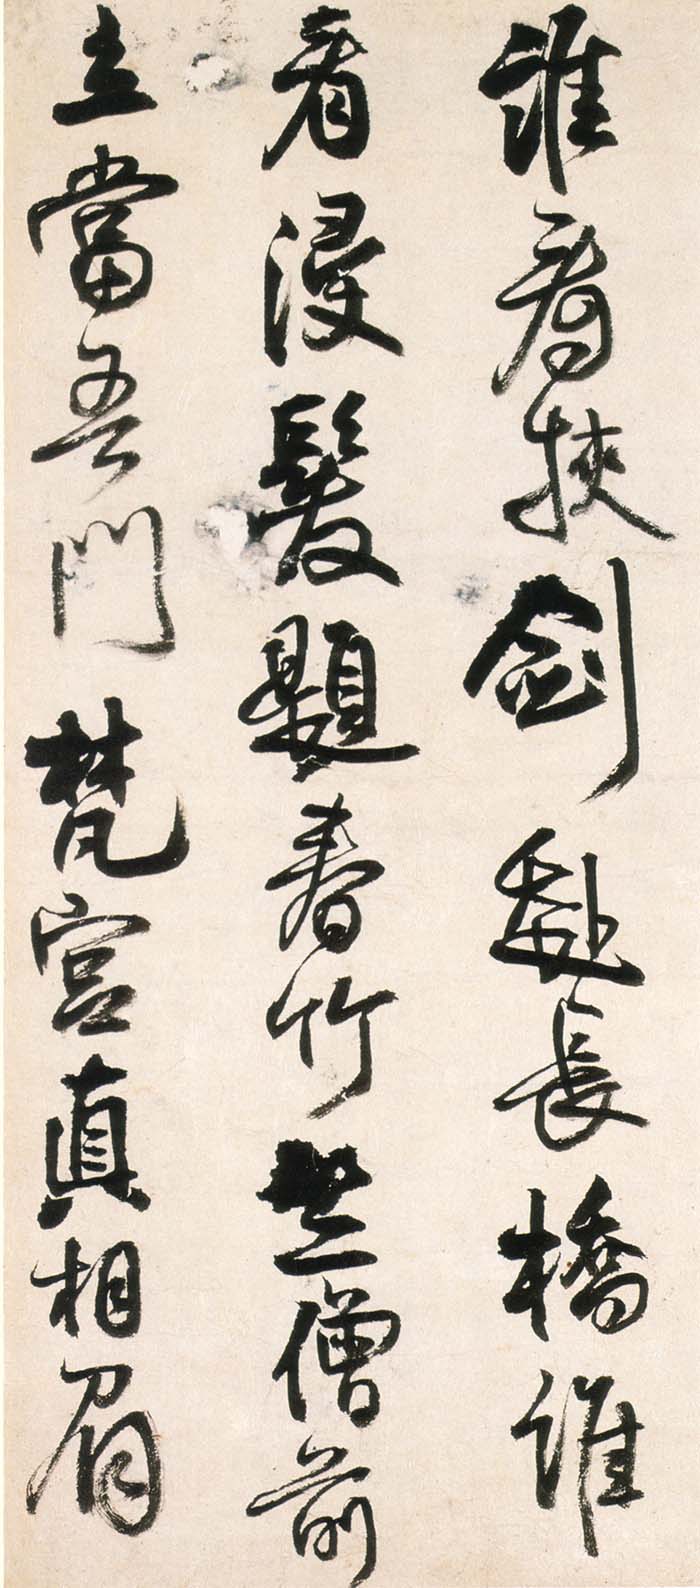 誰看挾劍赴長橋誰
看浸髮題春竹無僧前
立當吾門梵宮真相眉